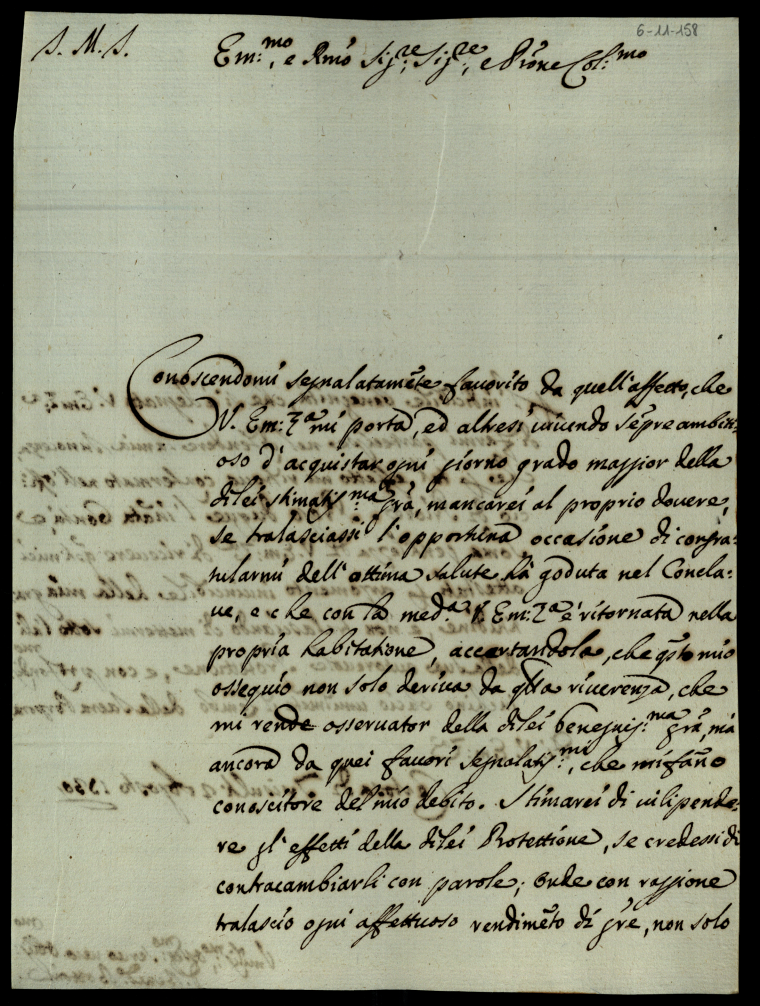 6-11-158
S. M. S.
Em:mo, e Rmo Sig:re Sig:re, e Prone Col:mo
Conoscendomi segnalatamẽte favorito da quell'affetto, che
V. Em:za mi porta, ed altresi vivendo sẽpre ambiti:
oso d'acquistar ogni giorno grado maggior della
dilei stimatis:ma gra, mancarei al proprio dovere,
se tralasciassi l'opportuna occasione di congra:
tularmi dell'ottima salute hà goduta nel Concla:
ve, e che con la med:a V. Em:za è ritornata nella
propria habitatione, accertandola, che qsto mio
ossequio non solo deriva da qlla riverenza, che
mi rende osservator della dilei benegnis:ma gra, mà
ancora da quei favori segnalatis:mi, che mi fãno
conoscitore del mio debito. Stimarei di vilipende:
re gl'effetti della dilei Protettione, se credessi di
contracambiarli con parole; onde con raggione
tralascio ogni affettuoso rendimẽto di gre, non solo